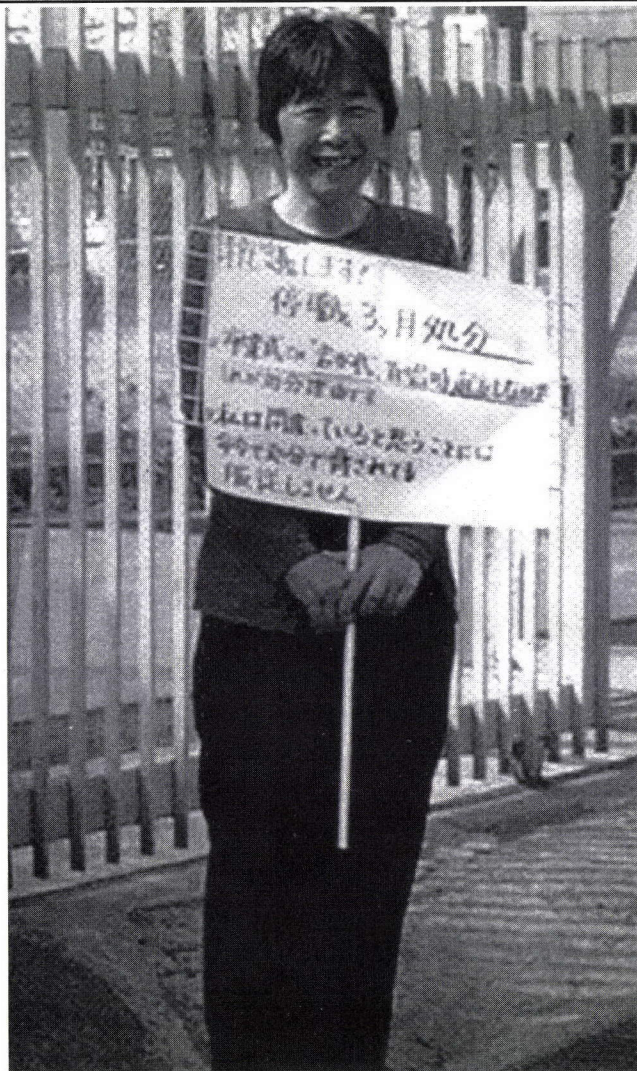 抗議します!
停職3ヶ月処分
卒業式の「君が代」斉唱時、起立しなかった
これが処分理由です
私は間違っていると思うことには
処分で脅されても
服従しません